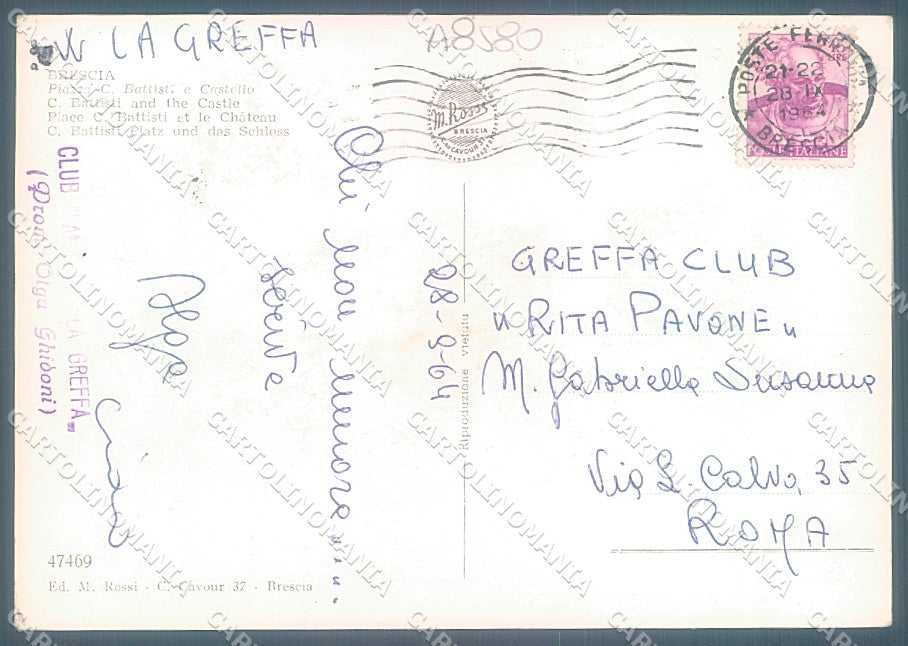 W LA GREFFA
A8580
BRESCIA
Piazza C. Battisti e Castello
C. Battisti and the Castle
Place C. Battisti et le Château
C. Battisti Platz und das Schloss
M. Rossi
BRESCIA
C. CAVOUR 37
POSTE FERROVIA
21-22
28 IX
1964
BRESCIA
POSTE ITALIANE
CLUB
LA GREFFA"
(Prom. Olga Ghidoni)
Chi non muore....
scrive
28-9-64
Olga
Riproduzione vietata
GREFFA CLUB
"RITA PAVONE"
M. Gabriella Susanna
Via L. Calvo, 35
ROMA
47469
Ed. M. Rossi - C. Cavour 37 - Brescia
CARTOLINOMANIA